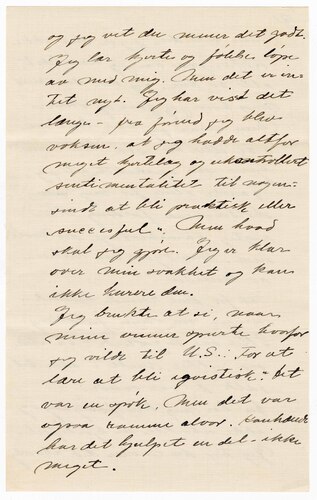 og jeg vet du mener det godt.
Jeg lar hjerte og følelse løpe
av med mig. Men det er in-
tet nyt. Jeg har visst det
længe - fra førend jeg blev
voksen, at jeg hadde altfor
meget hjertelag og ukontrollert
sentimentalitet til nogen-
sinde at bli praktisk eller
"succesful". Men hvad
skal jeg gjøre. Jeg er klar
over min svakhet og kan
ikke kurere den.
Jeg brukte at si, naar
mine venner spurte hvorfor
jeg vilde til U.S.: "For at
lære at bli egoistisk." Det
var en spøk, men det var
ogsaa ramme alvor. Kanhænde
har det hjulpet en del - ikke
meget.